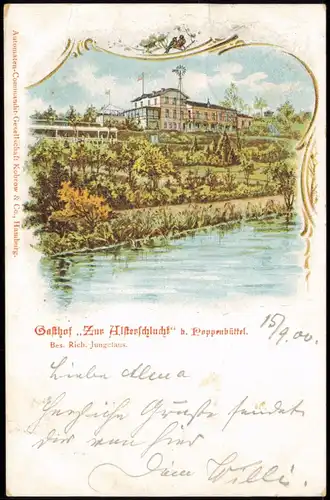 Automaten-Commandit-Gesellschaft Kohrow & Co., Hamburg.
Gasthof „Zur Alsterschlucht“ b. Poppenbüttel.
Bes. Rich. Jungclaus.
15/9.00.
Liebe Alma
Herzliche Grüße sendet
dir von hier
Dein Willi.